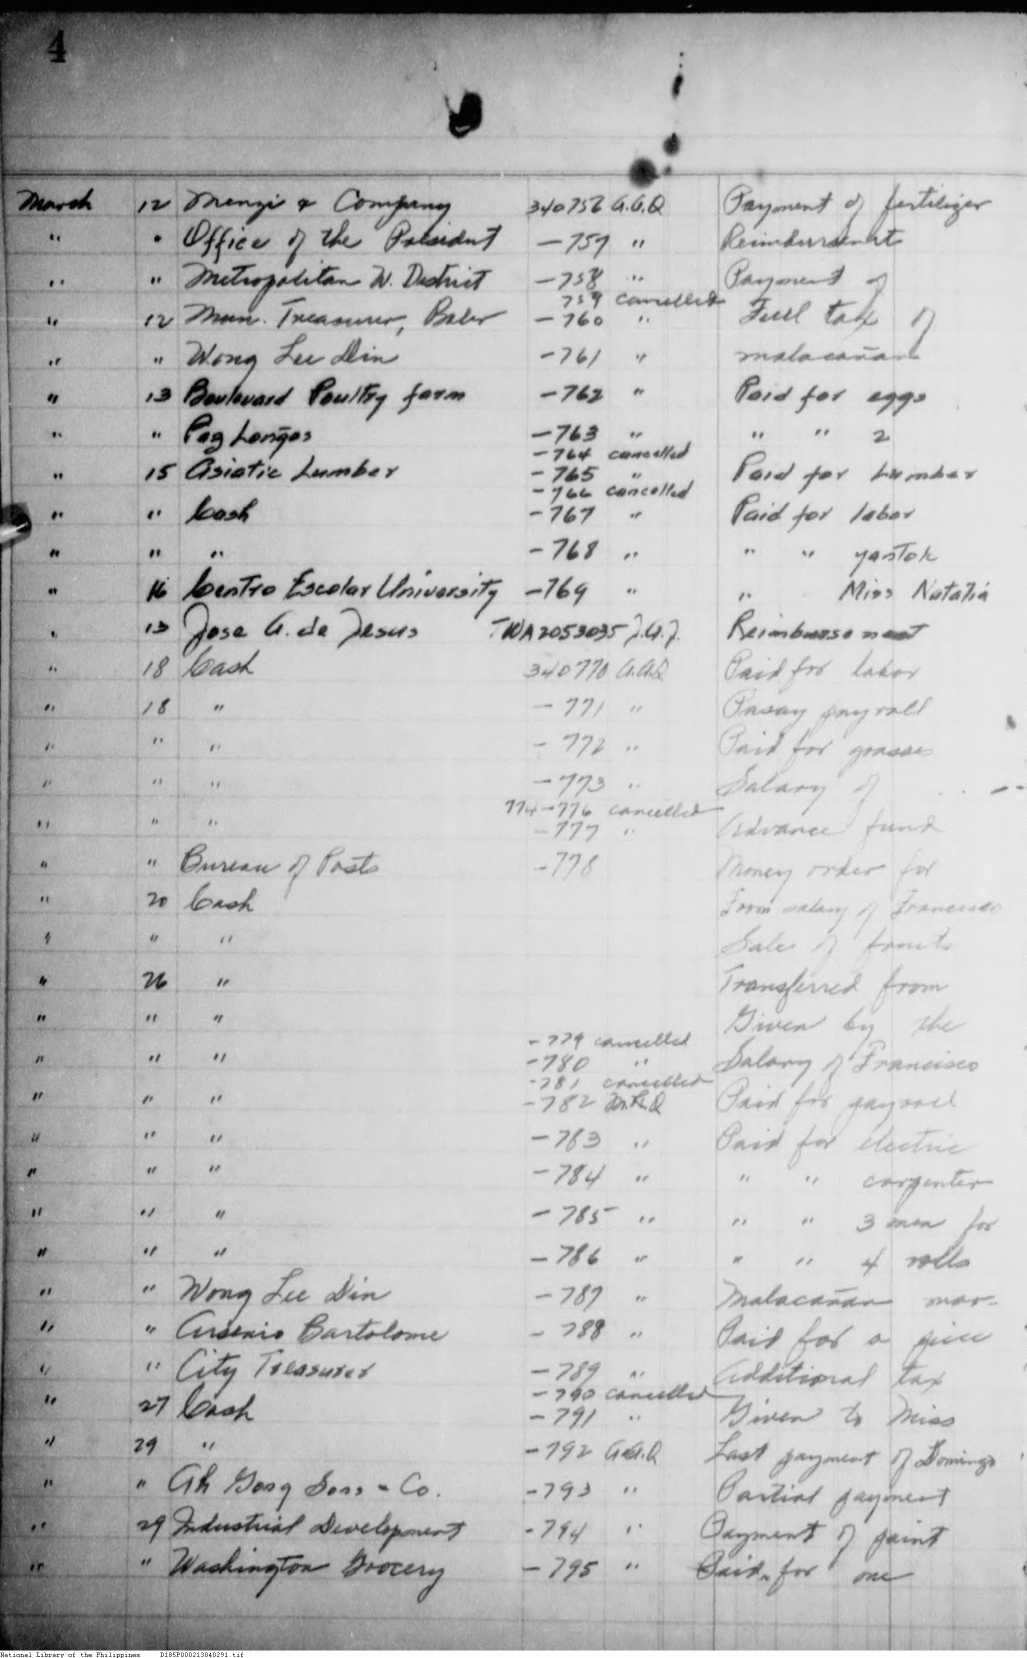 4
March 12 Menzi & Company 340756 A.A.Q Payment of fertilizer
" " Office of the President -757 " Reimbursement
" " Metropolitan W. District -758 " Payment of
759 cancelled
" 12 Mun. Treasurer, Baler -760 " Fuel tax of
" " Wong Lee Din -761 " malacañan
" 13 Boulevard Poultry farm -762 " Paid for eggs
" " Pag Longos -763 " " " 2
-764 cancelled
" 15 Asiatic Lumber -765 " Paid for Lumber
-766 cancelled
" " Cash -767 " Paid for labor
" " " -768 " " " yantok
" 16 Centro Escolar University -769 " " Miss Natalia
" 13 Jose A. de Jesus TWA2053035 J.A.J. Reimbursement
" 18 Cash 340770 A.A.Q Paid for labor
" 18 " -771 " Pasay payroll
" " " -772 " Paid for grasses
" " " -773 " Salary of
774-776 cancelled
" " " -777 " Advance fund
" " Bureau of Posts -778 Money order for
" 20 Cash From salary of Francisco
" " " Sale of fruits
" 26 " Transferred from
" " " Given by the
-779 cancelled
" " " -780 " Salary of Francisco
-781 cancelled
" " " -782 Paid for payroll
" " " -783 " Paid for electric
" " " -784 " " " carpenter
" " " -785 " " " 3 men for
" " " -786 " " " 4 rolls
" " Wong Lee Din -787 " Malacañan mar-
" " Arsenio Bartolome -788 " Paid for a piece
" " City Treasurer -789 " Additional tax
-790 cancelled
" 27 Cash -791 " Given to Miss
" 29 " -792 A.A.Q Last payment of Domingo
" " Ah Gong Sons & Co. -793 " Partial payment
" 29 Industrial Development -794 " Payment of paint
" " Washington Grocery -795 " Paid for one
National Library of the Philippines D185P000213040291.tif